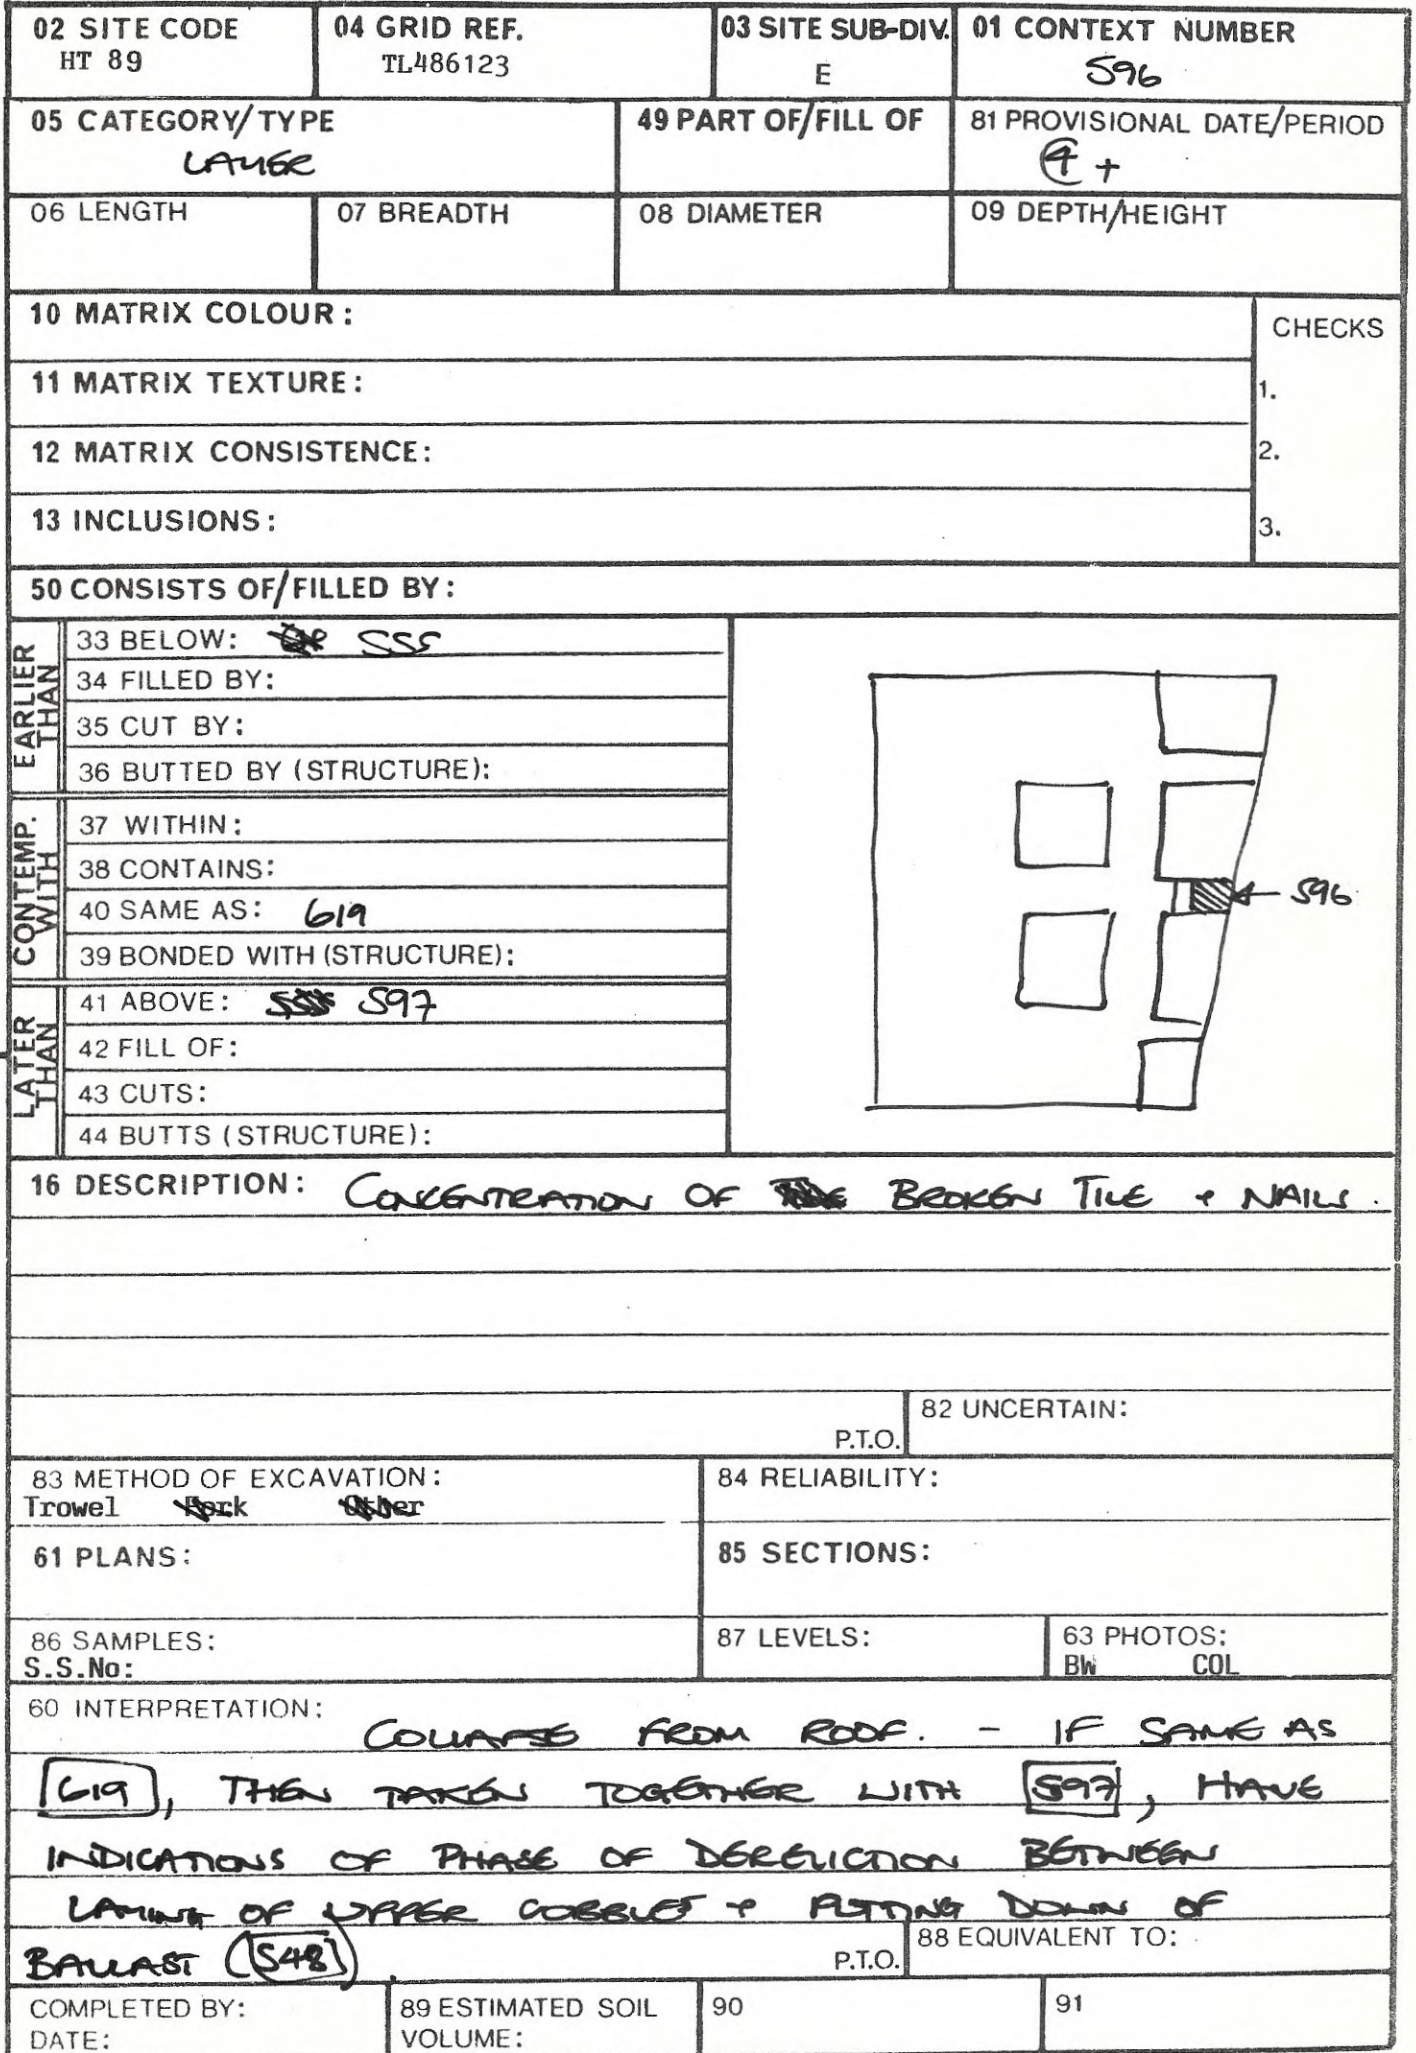 02 SITE CODE 04 GRID REF. 03 SITE SUB-DIV. 01 CONTEXT NUMBER
HT 89 TL486123 E 596
05 CATEGORY/TYPE 49 PART OF/FILL OF 81 PROVISIONAL DATE/PERIOD
LAYER 4 +
06 LENGTH 07 BREADTH 08 DIAMETER 09 DEPTH/HEIGHT
10 MATRIX COLOUR:
CHECKS
11 MATRIX TEXTURE:
1.
12 MATRIX CONSISTENCE:
2.
13 INCLUSIONS:
3.
50 CONSISTS OF/FILLED BY:
EARLIER THAN
33 BELOW: 555
34 FILLED BY:
35 CUT BY:
36 BUTTED BY (STRUCTURE):
CONTEMP. WITH
37 WITHIN:
38 CONTAINS:
40 SAME AS: 619
39 BONDED WITH (STRUCTURE):
LATER THAN
41 ABOVE: 597
42 FILL OF:
43 CUTS:
44 BUTTS (STRUCTURE):
596
16 DESCRIPTION: CONCENTRATION OF BROKEN TILE + NAILS.
82 UNCERTAIN:
P.T.O.
83 METHOD OF EXCAVATION: 84 RELIABILITY:
Trowel Fork Other
61 PLANS: 85 SECTIONS:
86 SAMPLES: 87 LEVELS: 63 PHOTOS:
S.S.No: BW COL
60 INTERPRETATION:
COLLAPSE FROM ROOF. - IF SAME AS
619, THEN TAKEN TOGETHER WITH 597, HAVE
INDICATIONS OF PHASE OF DERELICTION BETWEEN
LAYING OF UPPER COBBLES + PUTTING DOWN OF
BALLAST (548).
P.T.O. 88 EQUIVALENT TO:
COMPLETED BY: 89 ESTIMATED SOIL 90 91
DATE: VOLUME: